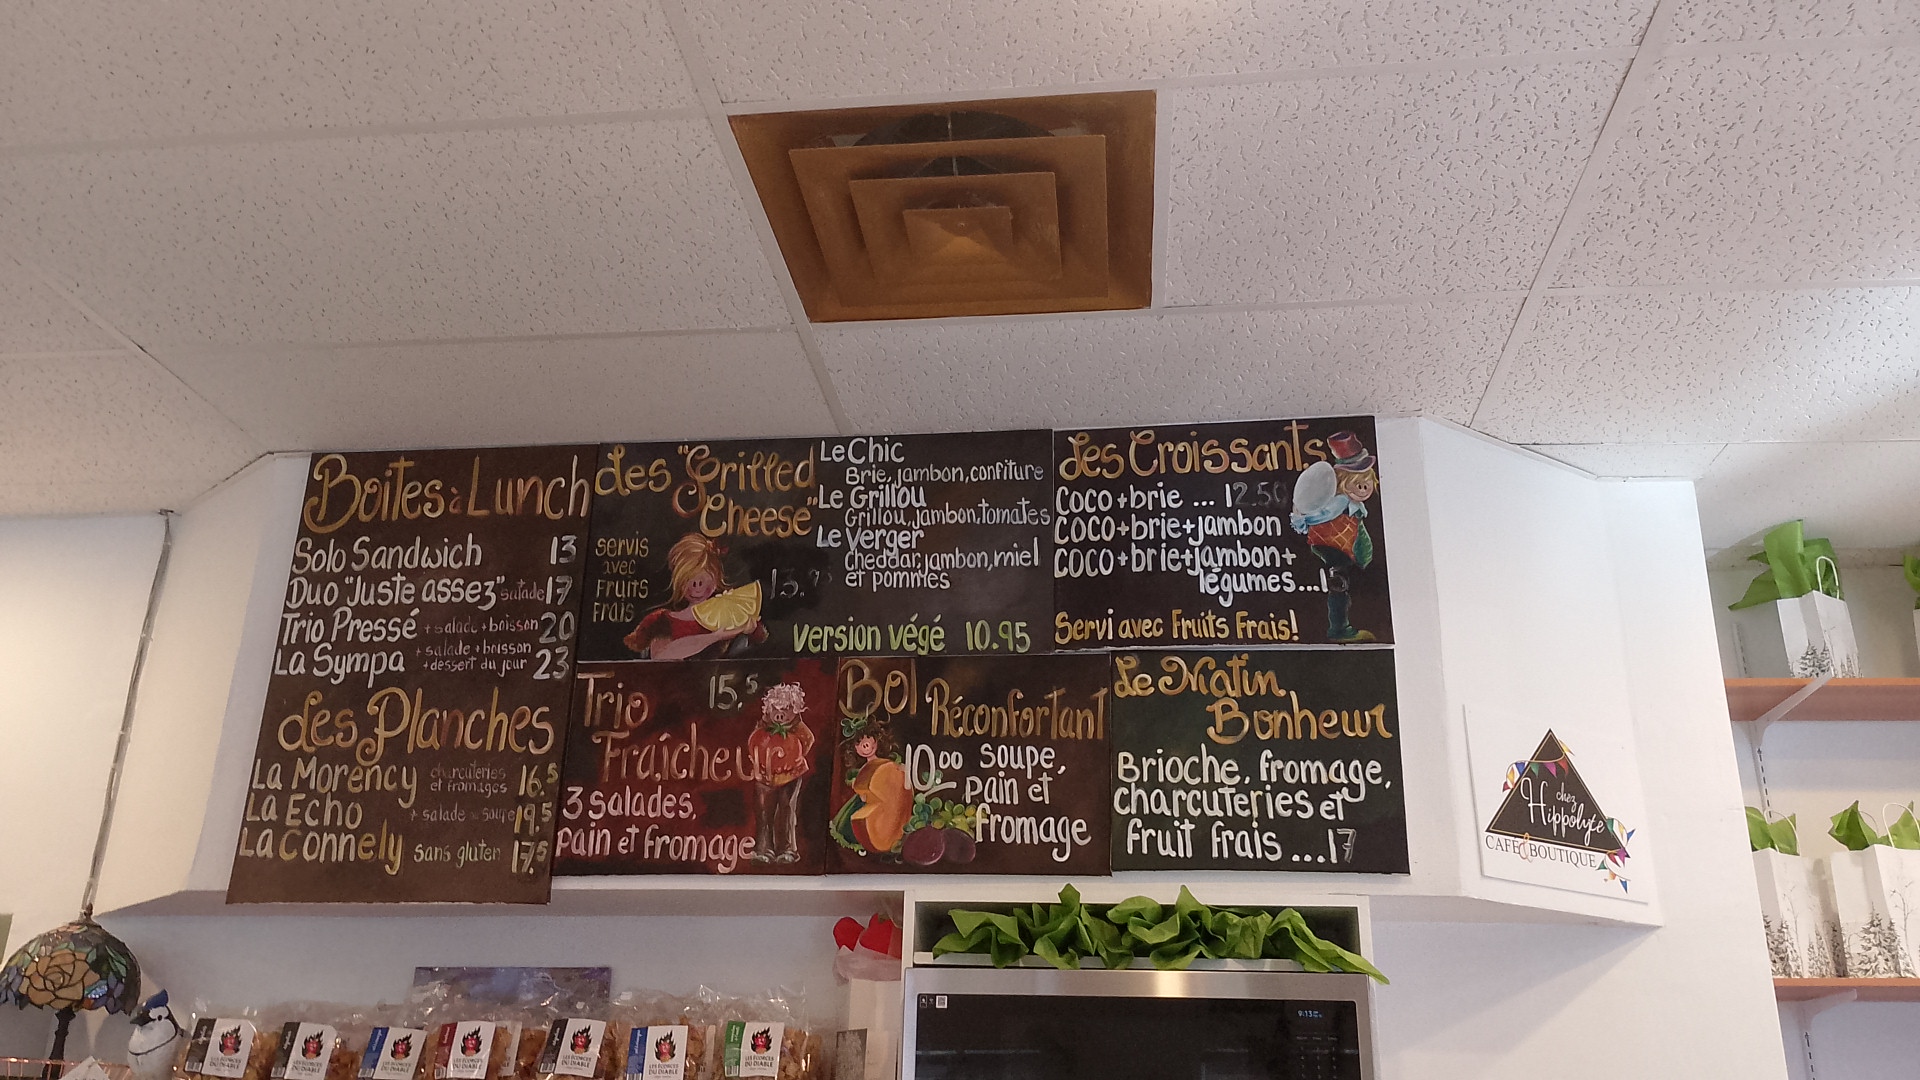 Boites à Lunch
Solo Sandwich 13
Duo "Juste assez" salade 17
Trio Pressé + salade + boisson 20
La Sympa + salade + boisson
+ dessert du jour 23
Les Planches
La Morency charcuteries
et fromages 16.5
La Echo + salade 19.5
La Connely sans gluten 17.5
Les "Grilled
Cheese"
servis
avec
Fruits
Frais
Le Chic
Brie, jambon, confiture
Le Grillou
Grillou, jambon, tomates
Le Verger
Cheddar, jambon, miel
et pommes
version végé 10.95
Les Croissants
Coco + brie ... 12.50
Coco + brie + jambon
Coco + brie + jambon +
légumes...
Servi avec Fruits Frais!
Trio 15.5
Fraîcheur
3 salades,
pain et fromage
Bol
Réconfortant
10.00 soupe,
pain et
fromage
Le Matin
Bonheur
Brioche, fromage,
charcuteries et
fruit frais ...17
chez
Hippolyte
CAFÉ & BOUTIQUE
LES ÉCORCES
DU DIABLE
LES ÉCORCES
DU DIABLE
LES ÉCORCES
DU DIABLE
LES ÉCORCES
DU DIABLE
LES ÉCORCES
DU DIABLE
LES ÉCORCES
DU DIABLE
9:13